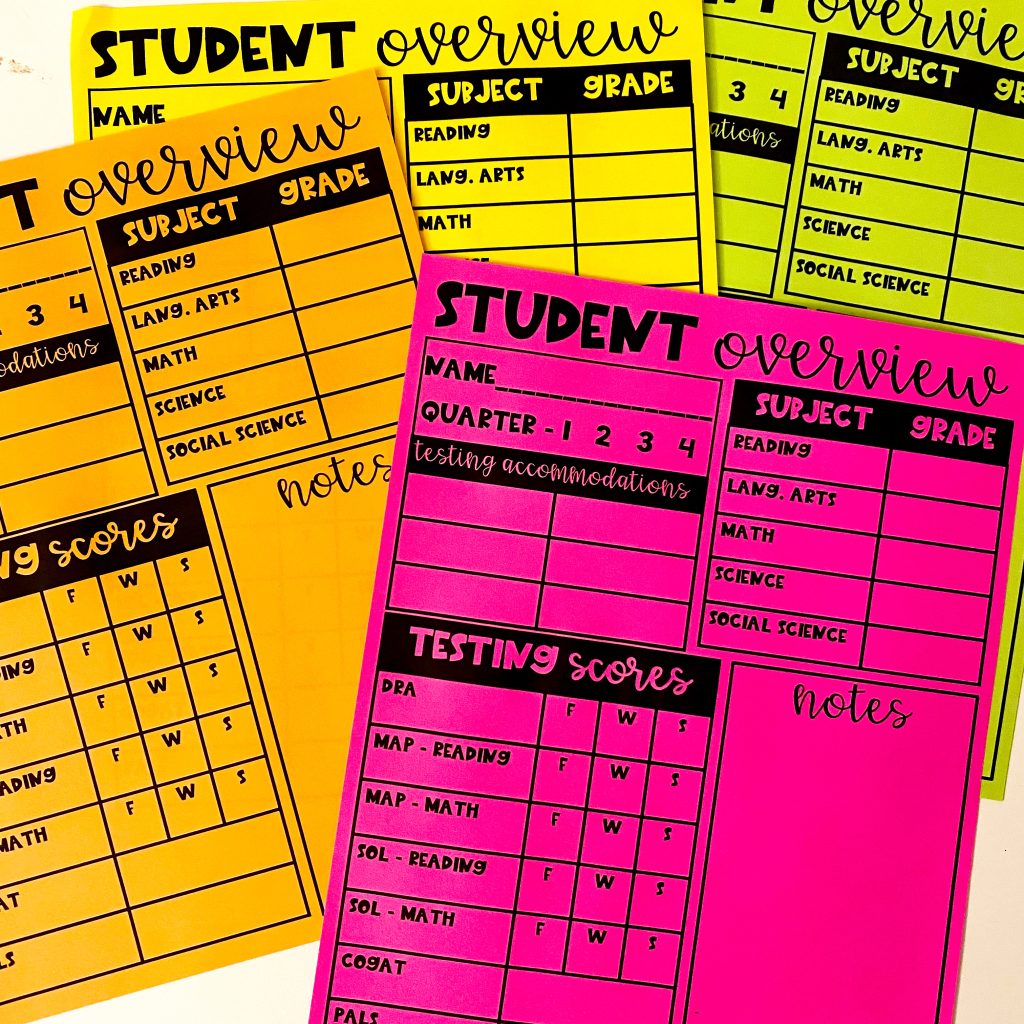 STUDENT overview
NAME
SUBJECT GRADE
READING
LANG. ARTS
MATH
3 4
SUBJECT
READING
LANG. ARTS
MATH
SCIENCE
SOCIAL SCIENCE
T overview
SUBJECT GRADE
READING
LANG. ARTS
MATH
SCIENCE
SOCIAL SCIENCE
3 4
notes
scores
F W S
F W S
MATH
F W S
F W S
MATH
F W S
STUDENT overview
NAME
QUARTER - 1 2 3 4
testing accommodations
SUBJECT GRADE
READING
LANG. ARTS
MATH
SCIENCE
SOCIAL SCIENCE
TESTING scores
DRA F W S
MAP - READING F W S
MAP - MATH F W S
SOL - READING F W S
SOL - MATH F W S
COGAT
PALS
notes